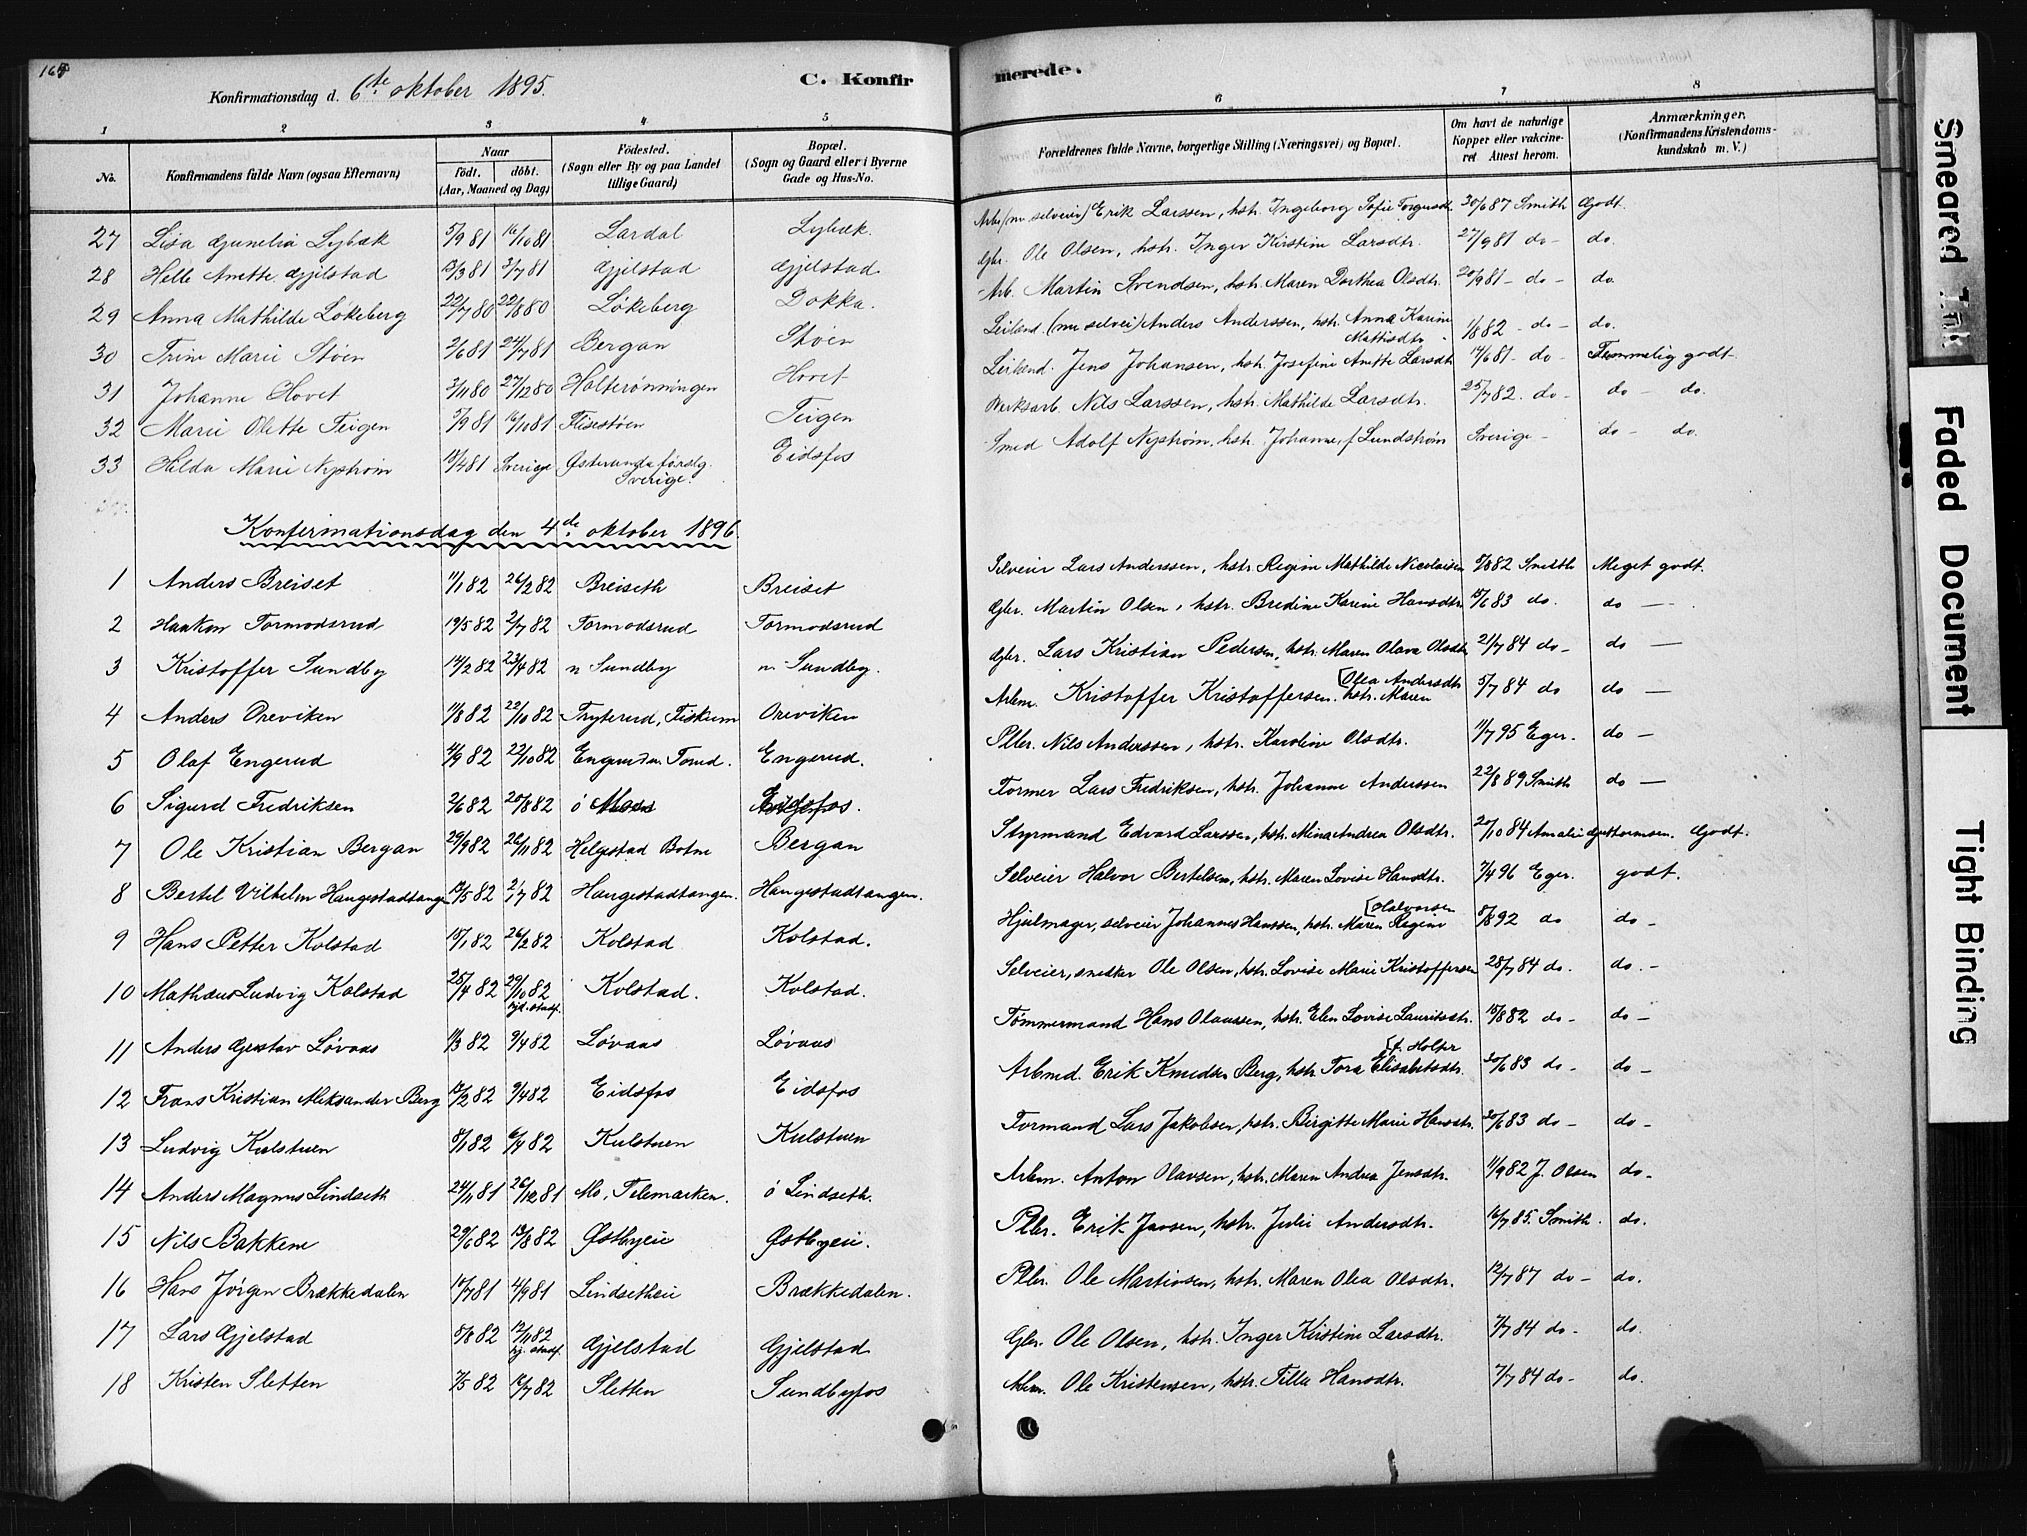 Konfirmationsdag d. 6te oktober 1895.
C. Konfirmerede.
1 2 3 4 5 6 7 8
No.
Konfirmandens fulde Navn (ogsaa Efternavn)
Naar
födt. döbt.
(Aar, Maaned og Dag)
Födested.
(Sogn eller By og paa Landet
tillige Gaard)
Bopæl.
(Sogn og Gaard eller i Byerne
Gade og Hus-No.
Forældrenes fulde Navne, borgerlige Stilling (Næringsvei) og Bopæl.
Om havt de naturlige
Kopper eller vakcine-
ret Attest herom.
Anmærkninger.
(Konfirmandens Kristendoms-
kundskab m. V.)
27 Lisa Gunelia Lybæk 5/9 81 16/10 81 Lardal Lybæk. Arb. (nu selveier) Erik Larssen, hstr. Ingeborg Sofie 30/6 87 Smith Godt.
28 Helle Anette Gjelstad 13/3 81 3/7 81 Gjelstad Gjelstad Gbr. Ole Olsen, hstr. Inger Kirstine Larsdtr. 27/9 81 do- do.
29 Anna Mathilde Løkeberg 22/7 80 22/8 80 Løkeberg Dokka. Arb. Martin Svendsen, hstr. Maren Dorthea Olsdtr. 20/9 81 - do - do.
30 Trine Marie Støen 2/6 81 24/7 81 Bergan Støen Leilend. (nu selvei) Anders Anderssen, hstr. Anna Karine Mattisdtr. 1/8 82 - do - do.
31 Johanne Hovet 3/11 80 27/12 80 Holterønningen Hovet Leilend. Jens Johansen, hstr. Josefine Anette Larsdtr 14/6 81 - do - Temmelig godt
32 Marie Olette Teigen 5/9 81 16/10 81 Flisestøen Teigen Verksarb. Nils Larssen, hstr. Mathilde Larsdtr. 25/7 82. do- do - do.
33 Hilda Marie Nystrøm 13/4 81 Sverige Østerunda förslg. Sverige. Eidsfos Smed Adolf Nystrøm, hstr. Johanne, f Lundstrøm Sverige - do - do.
Konfirmationsdag den 4de oktober 1896.
1 Anders Breiset 11/1 82 26/2 82 Breiseth Breiset Selveier Lars Anderssen, hstr. Regine Mathilde Nicolaisen 5/8 82 Smith Meget godt.
2 Haakon Tormodsrud 19/5 82 2/7 82 Tormodsrud Tormodsrud Gbr. Martin Olsen, hstr. Bredine Karine Hansdtr. 15/6 83 do. do -
3 Kristoffer Sundby 14/2 82 23/4 82 n Sundby n. Sundby. Gbr. Lars Kristian Pedersen, hstr. Maren Olava Olsdtr 21/7 84 do - do -
4 Anders Oreviken 11/8 82 22/10 82 Tryterud, Fiskum Oreviken Arbm. Kristoffer Kristoffersen. hstr. Maren [Olea Andersdtr 5/7 84 do do -
5 Olaf Engerud 4/9 82 22/10 82 Engerud Engerud. Pller. Nils Anderssen, hstr. Karoline Olsdtr. 11/7 95 Eger. do -
6 Sigurd Fredriksen 2/6 82 20/8 82 ö Moss Eidsfos. Former Lars Fredriksen, hstr. Johanne Anderssen 22/8 89 Smith do -
7 Ole Kristian Bergan 29/9 82 26/11 82 Helgestad Botne Bergan Styrmand Edvard Larssen, hstr. Mina Andrea Olsdtr. 20/10 84 Amalie Guttormsen. Godt.
8 Bertel Vilhelm Haugestadtangen 12/5 82 2/7 82 Haugestadtangen Haugestadtangen. Selveier Halvor Bertelsen, hstr. Maren Lovise Hansdtr. 7/4 96 Eger. godt.
9 Hans Petter Kolstad 15/1 82 26/2 82 Kolstad Kolstad. Hjulmager, selveier Johannes Hanssen, hstr. Maren Regine [Halvorsen 5/8 92 do do -
10 Mathæus Ludvig Kolstad 25/4 82 29/10 82 hjd. stadf. Kolstad. Kolstad. Selveier, snedker Ole Olsen, hstr. Lovise Marie Kristoffersen 28/7 84 do. do. -
11 Anders Gustav Løvaas 11/3 82 9/4 82 Løvaas Løvaas Tømmermand Hans Olaussen, hstr. Elen Lovise Lauritsdtr. 15/8 82 do - do -
12 Frans Kristian Aleksander Berg 12/2 82 9/4 82 Eidsfos Eidsfos Arbmd. Erik Knudsen Berg, hstr. Tora Elisabetsdtr. [f. Holter 30/6 83 do - do -
13 Ludvig Kulstuen 8/1 82 6/4 82 Kulstuen Kulstuen Formand Lars Jakobsen, hstr. Birgitte Marie Hansdtr. 30/6 83 do - do -
14 Anders Magnus Lindseth 24/11 81 26/12 81 Mo, Telemarken. ö Lindseth. Arbm. Anton Olavsen, hstr. Maren Andrea Jensdtr. 11/9 82 J. Olsen do -
15 Nils Bakkene 29/6 82 13/8 82 Østbyeie Østbyeie. Pller. Erik Jansen, hstr. Julie Andersdtr. 16/7 85. Smith. do.
16 Hans Jørgen Brækkedalen 10/7 81 4/9 81 Lindsetheie Brækkedalen. Pller. Ole Martinsen, hstr. Maren Olea Olsdtr. 12/7 87 do - do.
17 Lars Gjelstad 8/8 82 12/11 82 hj. stadf. Gjelstad Gjelstad Gbr. Ole Olsen, hstr. Inger Kirstine Larsdtr. 7/7 84 do - do.
18 Kristen Sletten 7/5 82 16/7 82 Sletten Sundbyfos Arbm. Ole Kristensen, hstr. Tilla Hansdtr. 7/7 84 do - do.
Smeared Ink
Faded Document
Tight Binding